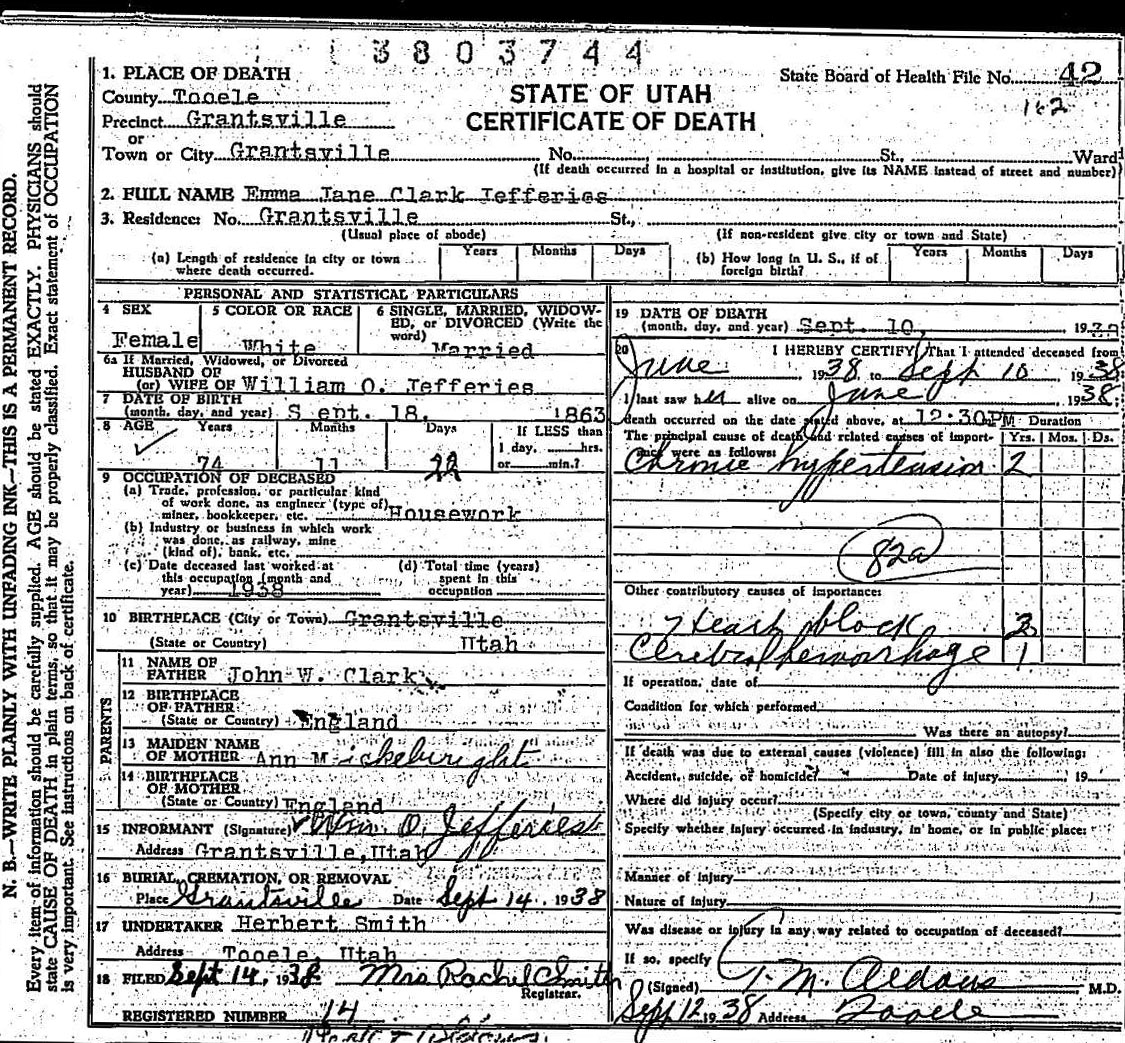 3803744
1. PLACE OF DEATH
State Board of Health File No. 42
County Tooele
STATE OF UTAH
162
Precinct Grantsville
CERTIFICATE OF DEATH
or
Town or City Grantsville No. St., Ward
(If death occurred in a hospital or institution, give its NAME instead of street and number)
2. FULL NAME Emma Jane Clark Jefferies
3. Residence: No. Grantsville St.,
(Usual place of abode) (If non-resident give city or town and State)
(a) Length of residence in city or town where death occurred. Years Months Days
(b) How long in U. S., if of foreign birth? Years Months Days
PERSONAL AND STATISTICAL PARTICULARS
4 SEX Female
5 COLOR OR RACE White
6 SINGLE, MARRIED, WIDOW-
ED, or DIVORCED (Write the
word) Married
6a If Married, Widowed, or Divorced
HUSBAND OF
(or) WIFE OF William O. Jefferies
7 DATE OF BIRTH
(month, day, and year) Sept. 18, 1863
8 AGE Years Months Days If LESS than
1 day, hrs.
74 11 22 or min.?
9 OCCUPATION OF DECEASED
(a) Trade, profession, or particular kind
of work done, as engineer (type of)
miner, bookkeeper, etc. Housework
(b) Industry or business in which work
was done, as railway, mine
(kind of), bank, etc.
(c) Date deceased last worked at
this occupation (month and
year) 1938
(d) Total time (years)
spent in this
occupation
10 BIRTHPLACE (City or Town) Grantsville
(State or Country) Utah
PARENTS
11 NAME OF
FATHER John W. Clark
12 BIRTHPLACE
OF FATHER
(State or Country) England
13 MAIDEN NAME
OF MOTHER Ann Mickelwright
14 BIRTHPLACE
OF MOTHER
(State or Country) England
15 INFORMANT (Signature) Wm. O. Jefferies
Address Grantsville, Utah
16 BURIAL, CREMATION, OR REMOVAL
Place Grantsville Date Sept 14, 1938
17 UNDERTAKER Herbert Smith
Address Tooele, Utah
18 FILED Sept 14, 1938 Mrs Rachel Smith
Registrar.
REGISTERED NUMBER 14
19 DATE OF DEATH
(month, day, and year) Sept. 10, 19
20 I HEREBY CERTIFY, That I attended deceased from
June 1938 to Sept 10 1938
I last saw her alive on June 1938
death occurred on the date stated above, at 12:30P M
The principal cause of death and related causes of import-
ance were as follows:
Duration
Yrs. Mos. Ds.
Chronic hypertension 2
82a
Other contributory causes of importance:
Heart block
Cerebral hemorrhage 1
If operation, date of
Condition for which performed
Was there an autopsy?
If death was due to external causes (violence) fill in also the following:
Accident, suicide, or homicide? Date of injury 19
Where did injury occur?
(Specify city or town, county and State)
Specify whether injury occurred in industry, in home, or in public place:
Manner of injury
Nature of injury
Was disease or injury in any way related to occupation of deceased?
If so, specify
(Signed) T. M. Aldous M.D.
Sept 12 1938 Address Tooele
N. B.—WRITE PLAINLY WITH UNFADING INK—THIS IS A PERMANENT RECORD.
Every item of information should be carefully supplied. AGE should be stated EXACTLY. PHYSICIANS should
state CAUSE OF DEATH in plain terms, so that it may be properly classified. Exact statement of OCCUPATION
is very important. See instructions on back of certificate.